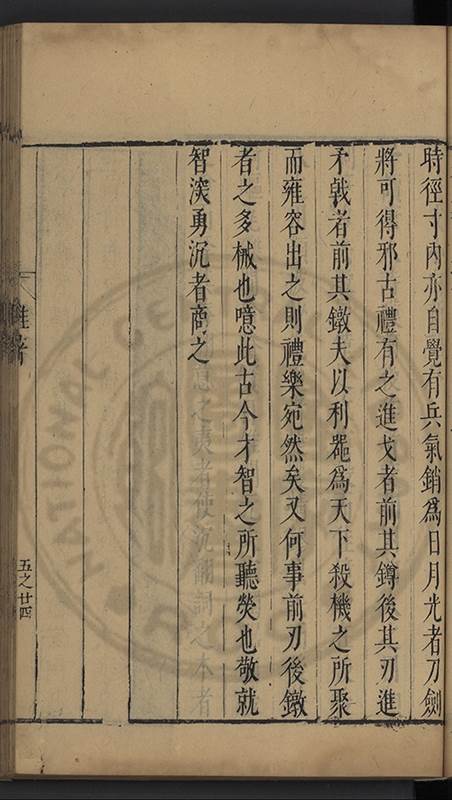 時徑寸內亦自覺有兵氣銷爲日月光者刀劍
將可得邪古禮有之進戈者前其鐏後其刃進
矛戟者前其鐓夫以利噐爲天下殺機之所聚
而雍容出之則禮樂宛然矣又何事前刃後鐓
者之多械也噫此古今才智之所聽熒也敬就
智深勇沉者商之
五之廿四